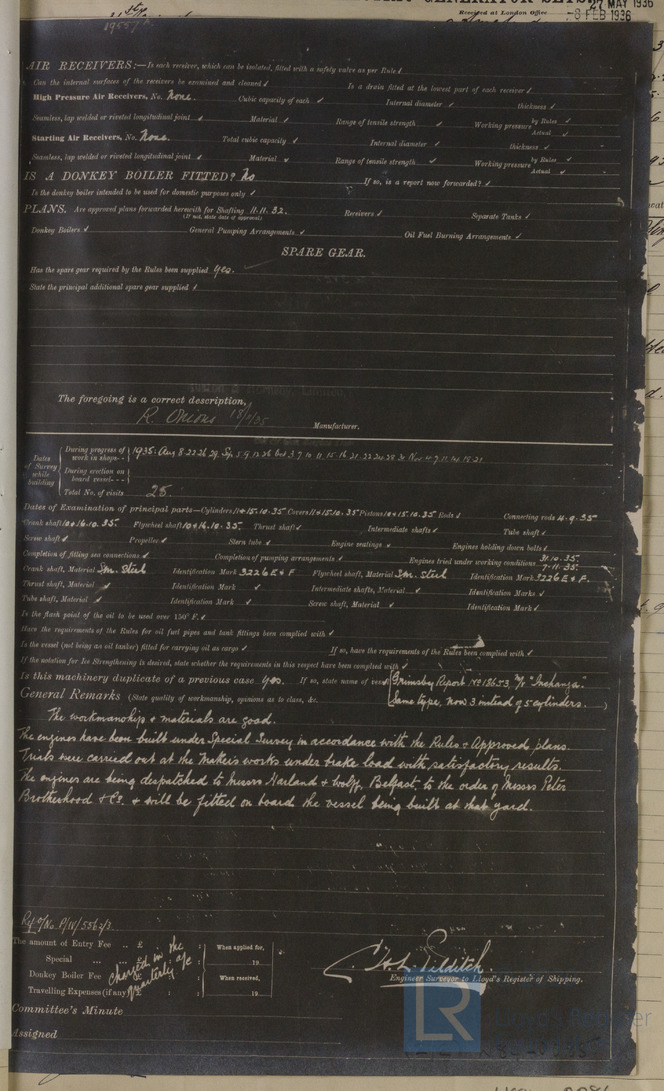 27 MAY 1936
Received at London Office
-8 FEB 1936
AIR RECEIVERS:—Is each receiver, which can be isolated, fitted with a safety valve as per Rule ✓
Can the internal surfaces of the receivers be examined and cleaned ✓ Is a drain fitted at the lowest part of each receiver ✓
High Pressure Air Receivers, No. None. Cubic capacity of each ✓ Internal diameter ✓ thickness ✓
Seamless, lap welded or riveted longitudinal joint ✓ Material ✓ Range of tensile strength ✓ Working pressure by Rules ✓ Actual ✓
Starting Air Receivers, No. None. Total cubic capacity ✓ Internal diameter ✓ thickness ✓
Seamless, lap welded or riveted longitudinal joint ✓ Material ✓ Range of tensile strength ✓ Working pressure by Rules ✓ Actual ✓
IS A DONKEY BOILER FITTED? No If so, is a report now forwarded? ✓
Is the donkey boiler intended to be used for domestic purposes only ✓
PLANS. Are approved plans forwarded herewith for Shafting 11.11.32. Receivers ✓ Separate Tanks ✓
(If not, state date of approval)
Donkey Boilers ✓ General Pumping Arrangements ✓ Oil Fuel Burning Arrangements ✓
SPARE GEAR.
Has the spare gear required by the Rules been supplied yes.
State the principal additional spare gear supplied ✓
The foregoing is a correct description,
R. Onions Manufacturer.
Dates of Survey while building
During progress of work in shops - - 1935: Aug 8. 22 26 29. Sep. 5. 9. 12 26 Oct 3. 7. 10. 11. 15. 16. 21. 22 24 28 31 Nov 4. 7. 11. 14. 18. 21.
During erection on board vessel - - -
Total No. of visits 25.
Dates of Examination of principal parts—Cylinders 11 & 15.10.35 Covers 11 & 15.10.35 Pistons 10 & 15.10.35 Rods ✓ Connecting rods 4.9.35
Crank shaft 10 & 16.10.35. Flywheel shaft 10 & 16.10.35. Thrust shaft ✓ Intermediate shafts ✓ Tube shaft ✓
Screw shaft ✓ Propeller ✓ Stern tube ✓ Engine seatings ✓ Engines holding down bolts ✓
Completion of fitting sea connections ✓ Completion of pumping arrangements ✓ Engines tried under working conditions 31.10.35. 7.11.35.
Crank shaft, Material Sm. Steel Identification Mark 3226 E & F Flywheel shaft, Material Sm. Steel Identification Mark 3226 E & F.
Thrust shaft, Material ✓ Identification Mark ✓ Intermediate shafts, Material ✓ Identification Marks ✓
Tube shaft, Material ✓ Identification Mark ✓ Screw shaft, Material ✓ Identification Mark ✓
Is the flash point of the oil to be used over 150° F. ✓
Have the requirements of the Rules for oil fuel pipes and tank fittings been complied with ✓
Is the vessel (not being an oil tanker) fitted for carrying oil as cargo ✓ If so, have the requirements of the Rules been complied with ✓
If the notation for Ice Strengthening is desired, state whether the requirements in this respect have been complied with ✓
Is this machinery duplicate of a previous case yes. If so, state name of vessel Grimsby Report No 18653 M/V "Inchanga"
Same type, now 3 instead of 5 cylinders.
General Remarks (State quality of workmanship, opinions as to class, &c.
The workmanship & materials are good.
The engines have been built under Special Survey in accordance with the Rules & Approved plans.
Trials were carried out at the Makers works under brake load with satisfactory results.
The engines are being despatched to Messrs Harland & Wolff, Belfast, to the order of Messrs Peter
Brotherhood & Co. & will be fitted on board the vessel being built at that yard.
The amount of Entry Fee .. £ : : When applied for,
Special ... ... £ : : 19
Donkey Boiler Fee £ : : When received,
Travelling Expenses (if any) £ : : 19
charged in the quarterly a/c
Engineer Surveyor to Lloyd's Register of Shipping.
Committee's Minute
Assigned
LR
Lloyd's Register